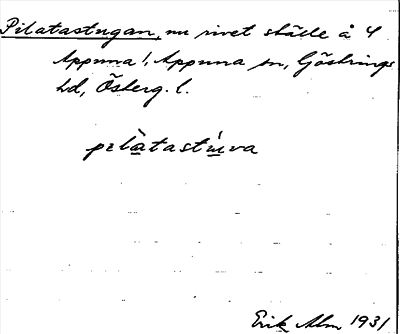 Pilatastugan, nu rivet ställe å 4
Appuna!, Appuna sn, Göstrings
hd, Österg. l.
pelàtastúva
Erik Alm 1931